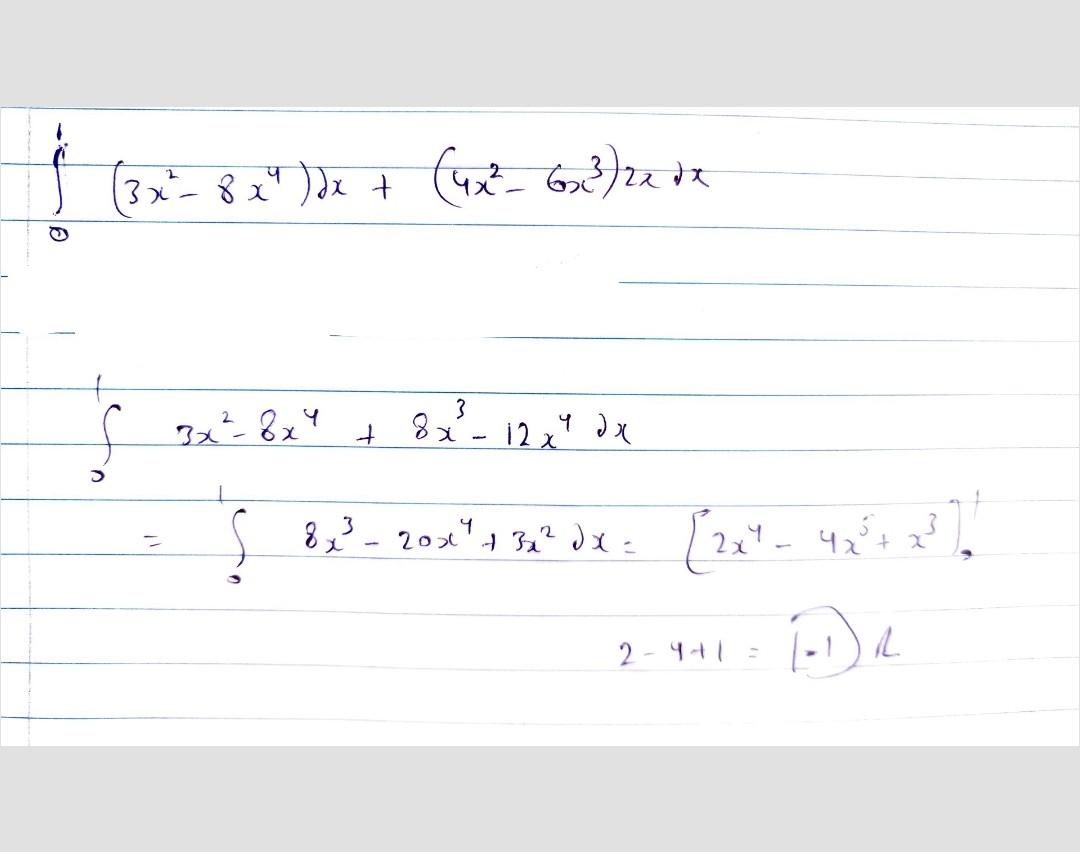 ∫₀¹ (3x² - 8x⁴)dx + (4x² - 6x³)2x dx
∫₀¹ 3x² - 8x⁴ + 8x³ - 12x⁴ dx
= ∫₀¹ 8x³ - 20x⁴ + 3x² dx = [2x⁴ - 4x⁵ + x³]₀¹
2 - 4 + 1 = (-1)